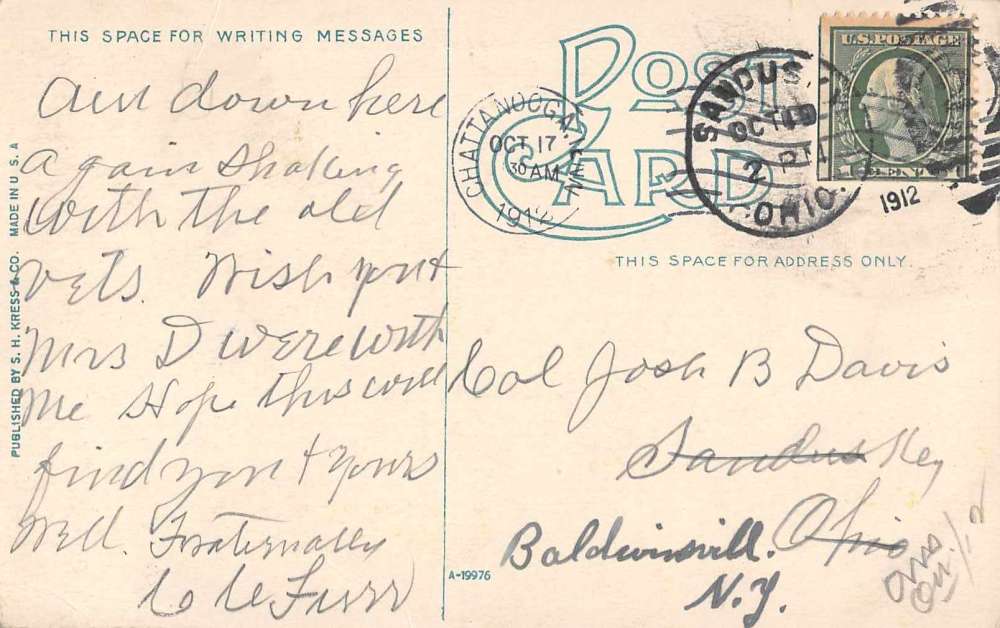 THIS SPACE FOR WRITING MESSAGES
Am down here
again shaking
with the old
vets. Wish you +
Mrs D were with
me Hope this will
find you + yours
well. Fraternally
PUBLISHED BY S. H. KRESS & CO. MADE IN U. S. A
A-19976
POST CARD
CHATTANOOGA, TENN
OCT 17
30 AM
1912
SANDUS
OCT 19
2 PM
OHIO.
1912
U.S. POSTAGE
THIS SPACE FOR ADDRESS ONLY.
Col Josh B Davis
Sandusky
Ohio
Baldwinsvill.
N.Y.